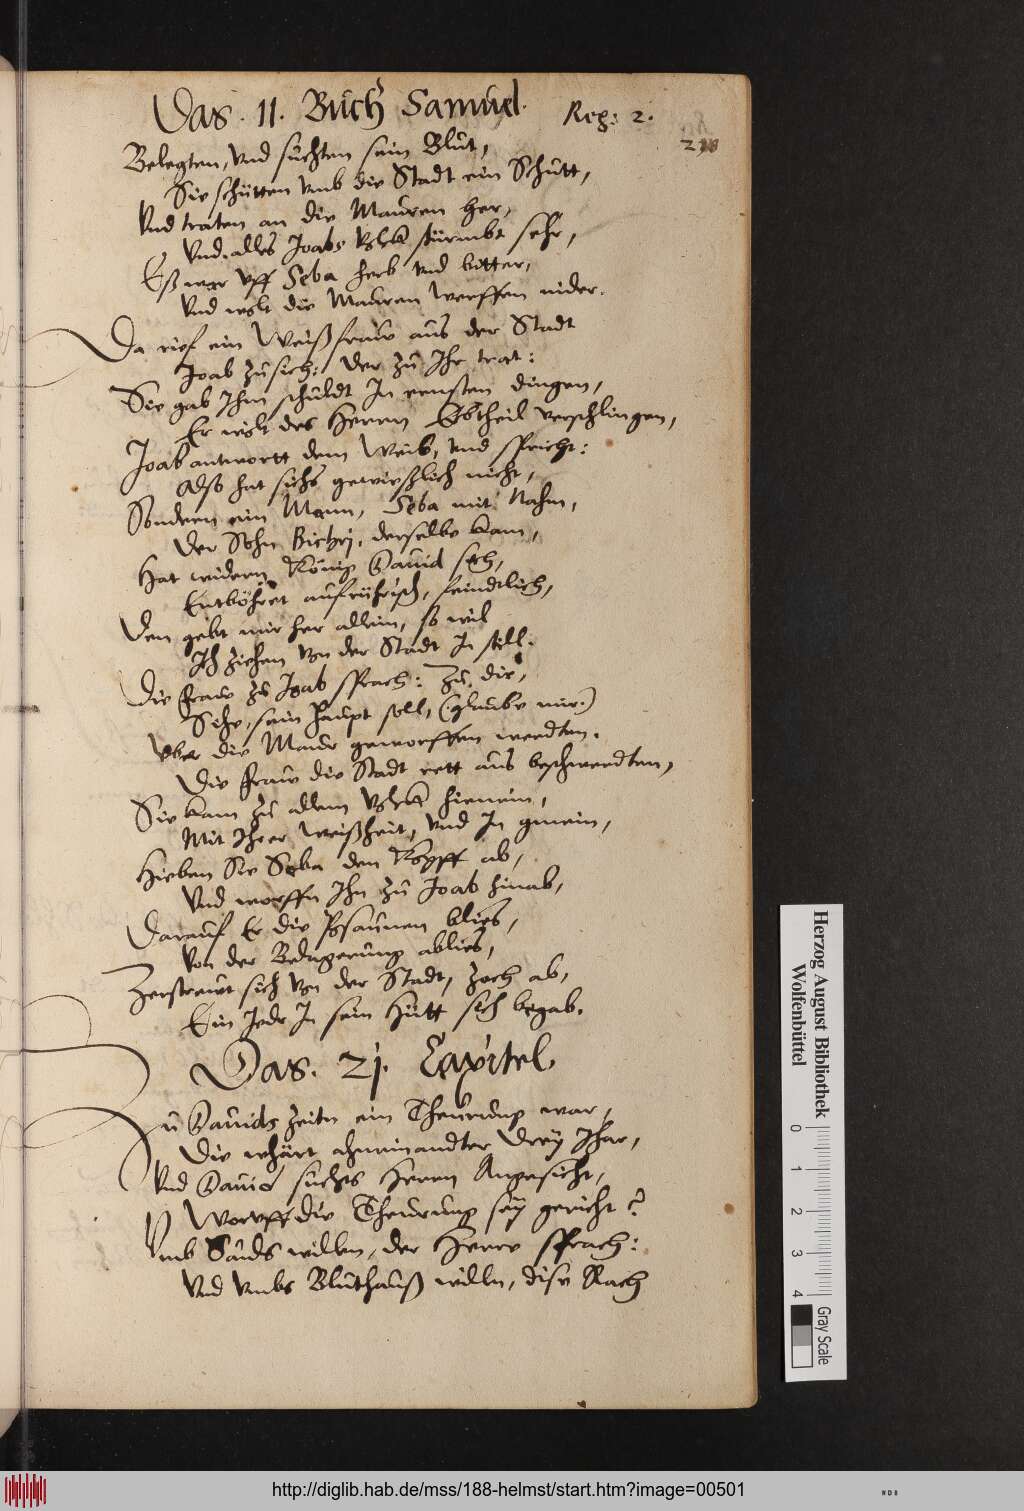 Das. II. Buch Samuel. Reg: 2.
Belegten, vnd suchten sein Blut,
Sie schütten vmb die Stadt ein Schutt,
Vnd traten an die Mauren her,
Vnd alles Joabs Volck stürmbt sehr,
Eß war vff Seba herb vnd bitter,
Vnd wolt die Mauren werffen nider.
Da rief ein Weiß fraw aus der Stadt
Joab zu sich: der zu Ihr trat:
Sie gab Ihm schuldt In ernsten dingen,
Er wolt des Herren Erbtheil verschlingen,
Joab antwortt dem Weib, vnd spricht:
Also hat sichs gewißlich nicht,
Sondern ein Mann, Seba mit Nahm,
Der Sohn Bichri, derselbe kam,
Hat widern König Dauid sich,
Entböhret aufrührisch, feindtlich,
Den gebt mir her allein, so wil
Ich ziehen von der Stadt In still.
Die fraw zu Joab sprach: Zu dir,
Sihe, sein haupt soll, (glaube mir)
Vber die Maur geworffen werdten.
Die fraw die Stadt rett aus beschwerdten,
Sie kam zu allem Volck hienein,
Mit Ihrer weißheit, vnd In gmein,
Hieben Sie Seba den Kopff ab,
Vnd worffn Ihn zu Joab hinab,
Darauf Er die Posaunen blies,
Von der Belagerung ablies,
Zerstrewt sich von der Stadt, zoch ab,
Ein Jeder In sein Hütt sich begab.
Das. 21. Capitel.
Zu Dauids zeitn ein Theurung war,
Die whärt aneinandter Drey Jhar,
Vnd Dauid suchts Herrn Angesicht,
Worvff die Theurung sey gericht?
Vmb Sauls willen, der Herre sprach:
Vnd vmbs Bluthauß willn, dise Rach
Herzog August Bibliothek
Wolfenbüttel
0 1 2 3 4
Gray Scale
http://diglib.hab.de/mss/188-helmst/start.htm?image=00501